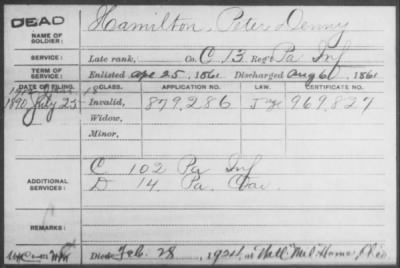 DEAD
NAME OF SOLDIER: Hamilton, Peter Denny
SERVICE: Late rank, Co. C 13 Reg't Pa Inf
TERM OF SERVICE: Enlisted Apr 25, 1861 Discharged Aug 6, 1861
DATE OF FILING. CLASS. APPLICATION NO. LAW. CERTIFICATE NO.
1890 July 25 Invalid, 879,286 969,827
Widow,
Minor,
C 102 Pa Inf
ADDITIONAL SERVICES: D 14 Pa. Cav.
REMARKS:
Died Feb. 28, 1924, at Natl. Mil. Home, Ohio